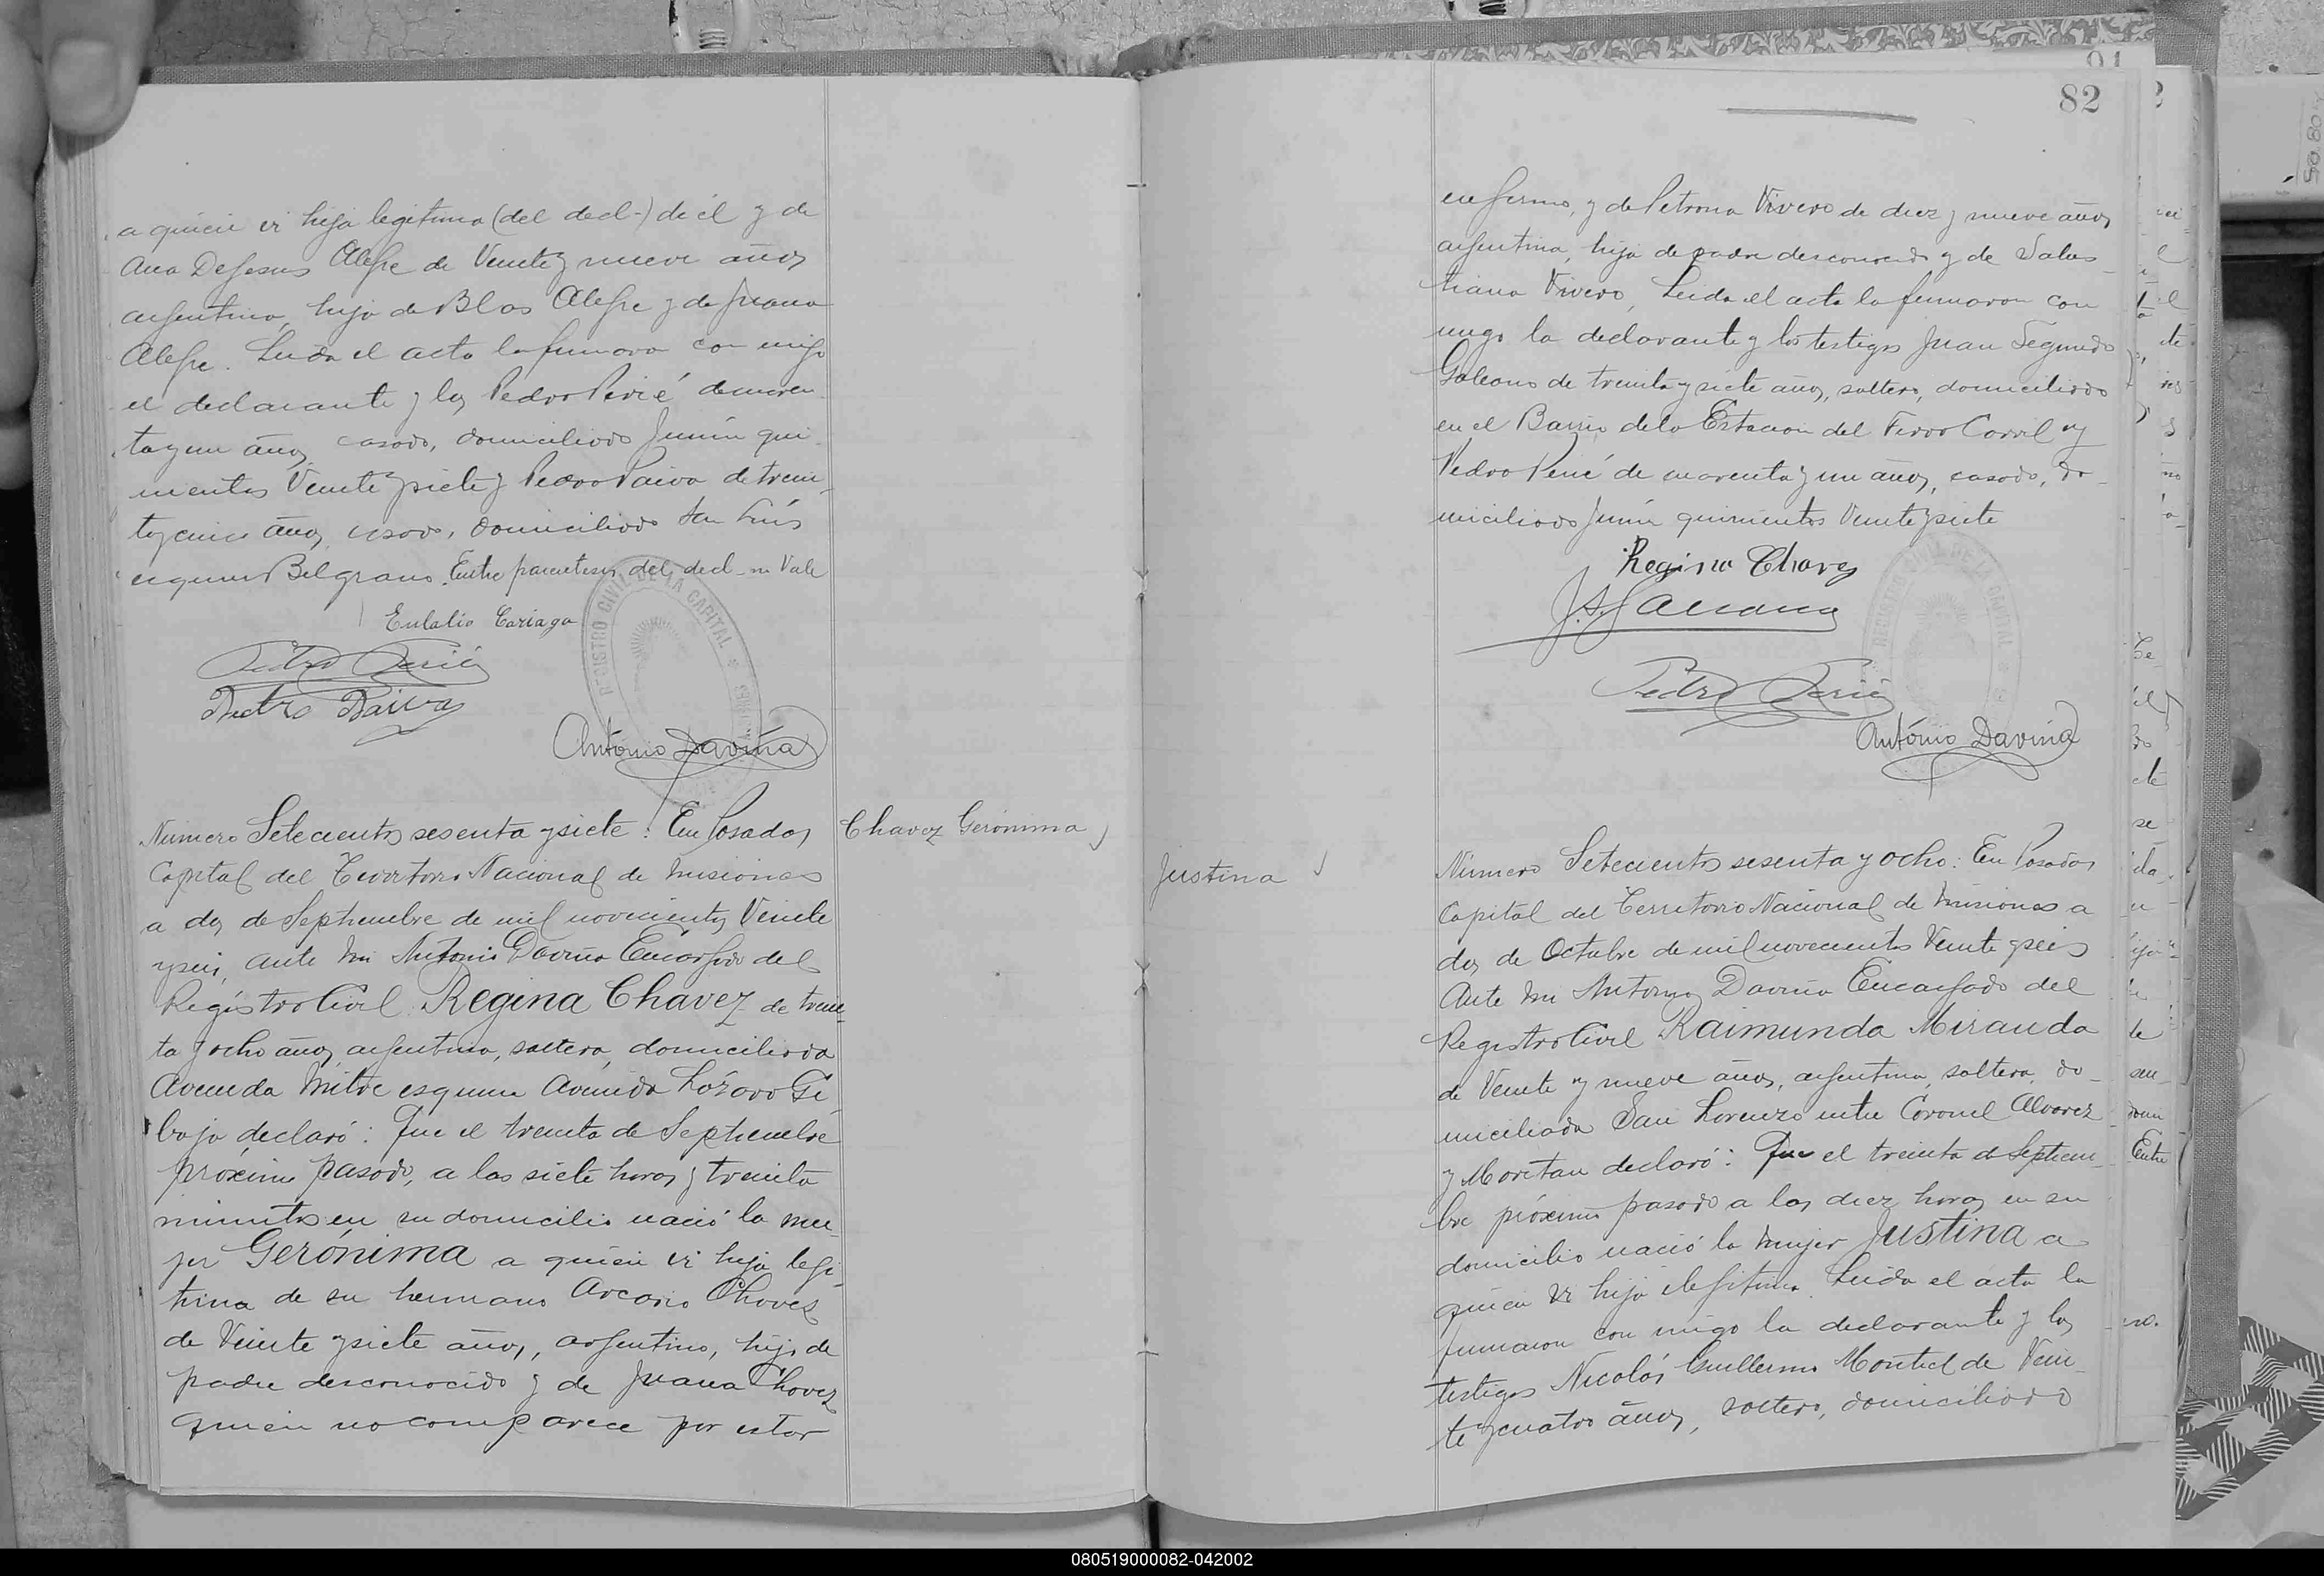 a quien vi hija legitima (del decl-) de él y de
Ana DeJesus Alegre de Veinte y nueve años
argentina, hija de Blas Alegre y de Juana
Alegre. Leida el acta la firmaron con migo
el declarante y los Pedro Perié de cuaren
ta y un años, casado, domiciliado Junin qui
nientos Veinte y siete y Pedro Paiva de trein
ta y cinco años, casado, domiciliado San Luis
esquina Belgrano. Entre parentesis del decl-no Vale
Eulalio Cariaga
Pedro Perié
Pedro Paiva
Antonio Daviña
REGISTRO CIVIL DE LA CAPITAL
Número Setecientos sesenta y siete: En Posadas
Capital del Territorio Nacional de Misiones
a dos de Septiembre de mil novecientos Veinte
y seis, ante mi Antonio Daviña Encargado del
Registro Civil Regina Chavez de trein
ta y ocho años, argentina, soltera, domiciliada
Avenida Mitre esquina Avenida Lázaro Gi
baja declaró: Que el treinta de Septiembre
próximo pasado, a las siete horas y treinta
minutos en su domicilio nació la mu
jer Gerónima a quien vi hija legi
tima de su hermano Arcario Chavez
de Veinte y siete años, argentino, hijo de
padre desconocido y de Juana Chavez
quien no comparece por estar
Chavez Gerónima
82
enfermo, y de Petrona Vivero de diez y nueve años
argentina, hija de padre desconocido y de Salus
tiana Vivero, Leida el acta la firmaron con
migo la declarante y los testigos Juan Segundo
Galeano de treinta y siete años, soltero, domiciliado
en el Barrio de la Estacion del Ferro Carril y
Pedro Perié de cuarenta y un años, casado, do
miciliado Junin quinientos Veinte y siete
Regina Chavez
Pedro Perié
Antonio Daviña
Justina
Número Setecientos sesenta y ocho: En Posadas
Capital del Territorio Nacional de Misiones a
dos de Octubre de mil novecientos Veinte y seis
Ante mi Antonio Daviña Encargado del
Registro Civil Raimunda Miranda
de Veinte y nueve años, argentina, soltera, do
miciliada San Lorenzo entre Coronel Alvarez
y Moritan declaró: Que el treinta de Septiem
bre próximo pasado a las diez horas en su
domicilio nació la mujer Justina a
quien vi hija ilegitima. Leida el acta la
firmaron con migo la declarante y los
testigos Nicolás Guillermo Montiel de Vein
te y cuatro años, soltero, domiciliado
080519000082-042002